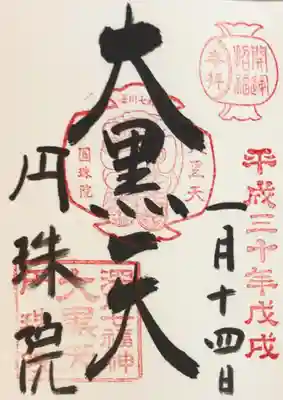 開運
招福
奉拝
平成三十年戊戌
一月十四日
大黒天
円珠院
深川七福神
大黒天